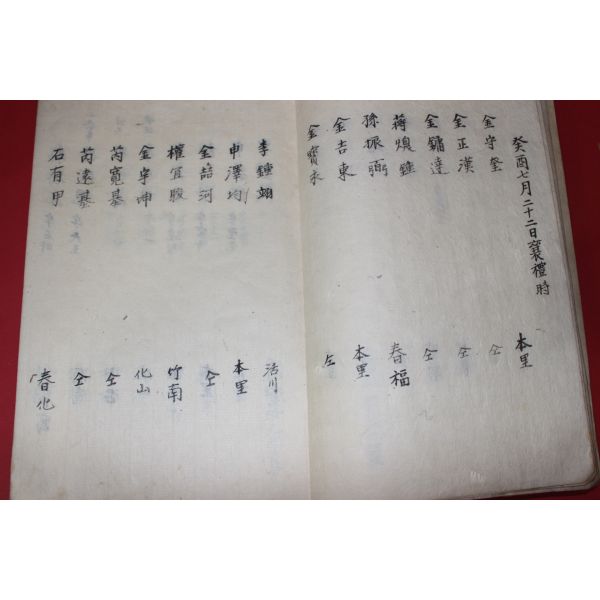 癸酉七月二十二日襄禮時
金守奎 本里
金正漢 仝
金鏞達 仝
蔣煥鍾 春福
孫振弼 本里
金吉東 仝
金寶永
李鍾翊 活川
申澤均 本里
金喆河 仝
權宜駿 竹南
金宇坤 化山
芮寬基 仝
芮遠基 仝
石有甲 春化